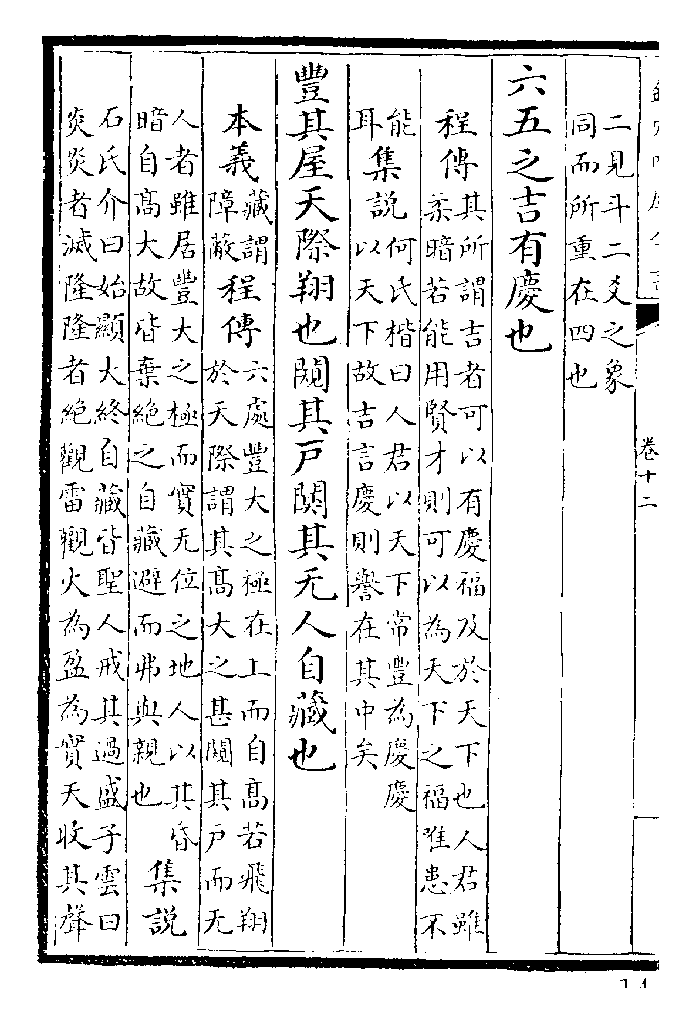 卷十二
二見斗二爻之象
同而所重在四也
六五之吉有慶也
程傳
其所謂吉者可以有慶福及於天下也人君雖
柔暗若能用賢才則可以為天下之福唯患不
能
耳
集說
何氏楷曰人君以天下常豐為慶慶
以天下故吉言慶則譽在其中矣
豐其屋天際翔也闚其戸闃其无人自藏也
本義
藏謂
障蔽
程傳
六處豐大之極在上而自高若飛翔
於天際謂其高大之甚闚其戸而无
人者雖居豐大之極而實无位之地人以其昏
暗自高大故皆棄絶之自藏避而弗與親也
集說
石氏介曰始顯大終自藏皆聖人戒其過盛子雲曰
炎炎者滅隆隆者絶觀雷觀火為盈為實天收其聲